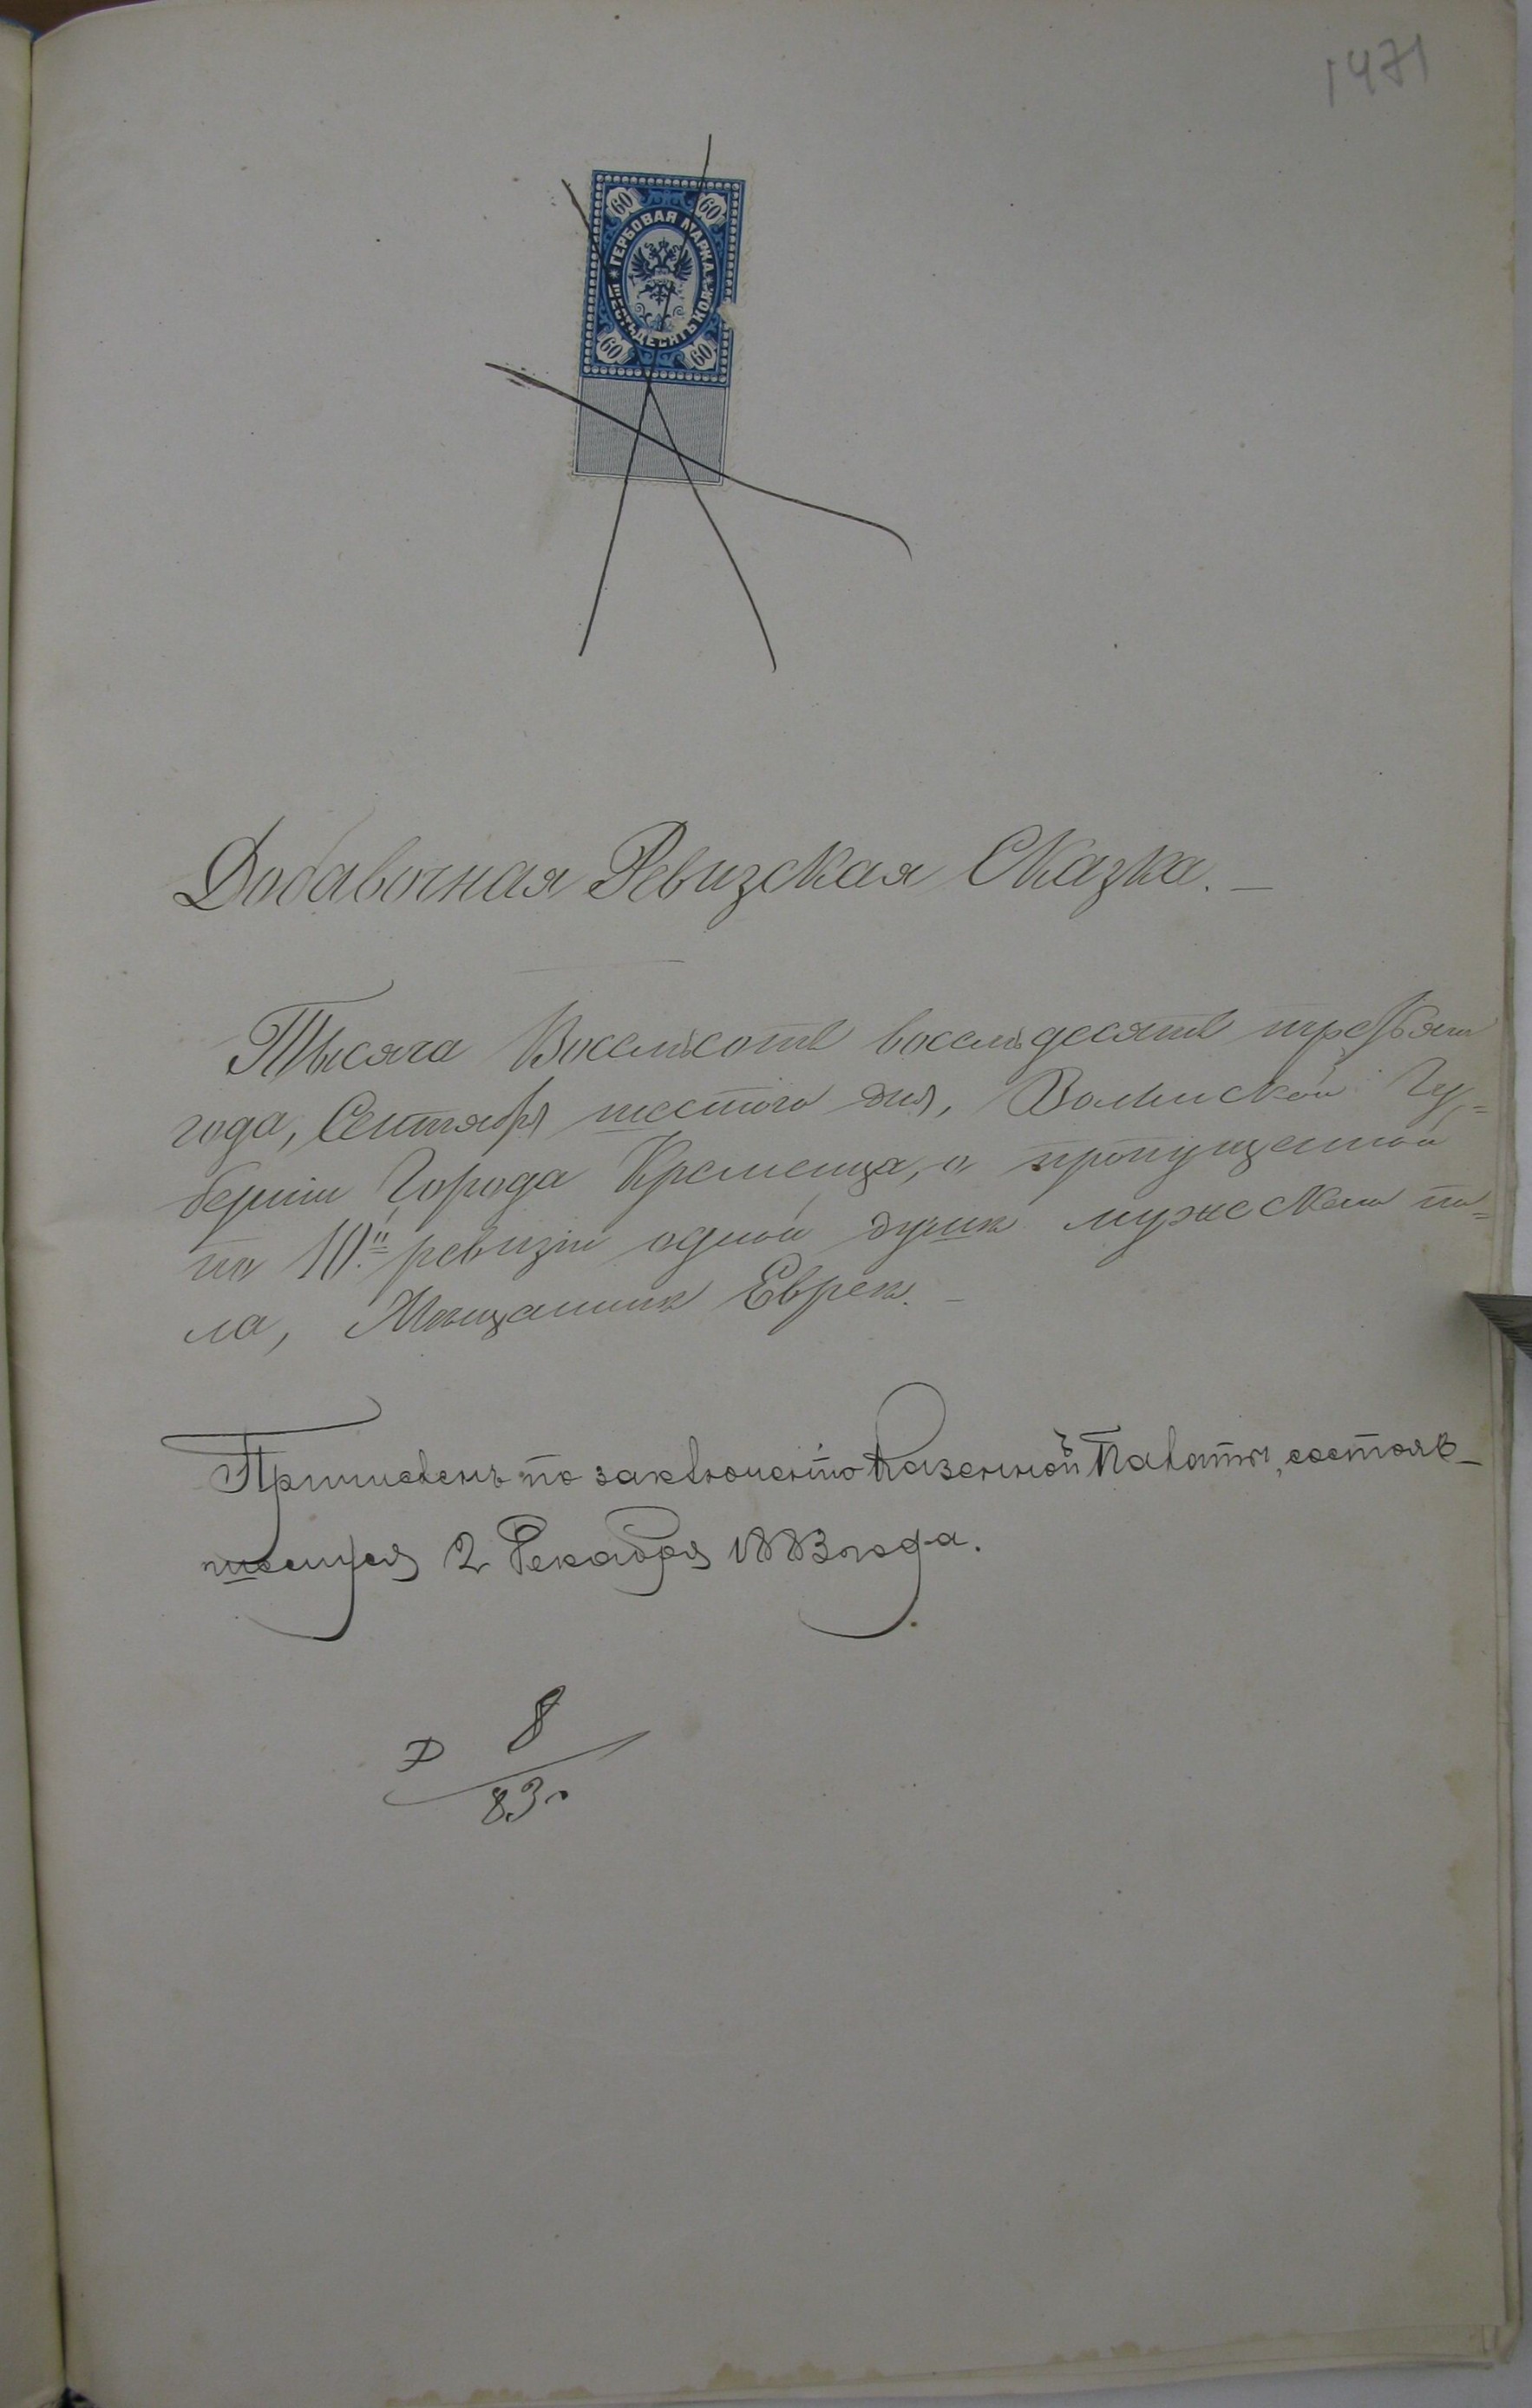 1471
60 60
ГЕРБОВАЯ МАРКА
ШЕСТЬДЕСЯТЪ КОП.
60 60
Добавочная Ревизская Сказка. —
Тысяча Восемьсотъ восемьдесятъ третьяго
года, Сентября шестого дня, Волынской Гу=
берніи Города Кременца, о пропущенной
по 10.й ревизіи одной души мужескаго по=
ла, Мѣщанинѣ Евреѣ. —
Приписанъ по заключенію Казенной Палаты, состояв-
шемуся 2 Декабря 1883 года.
8
83.